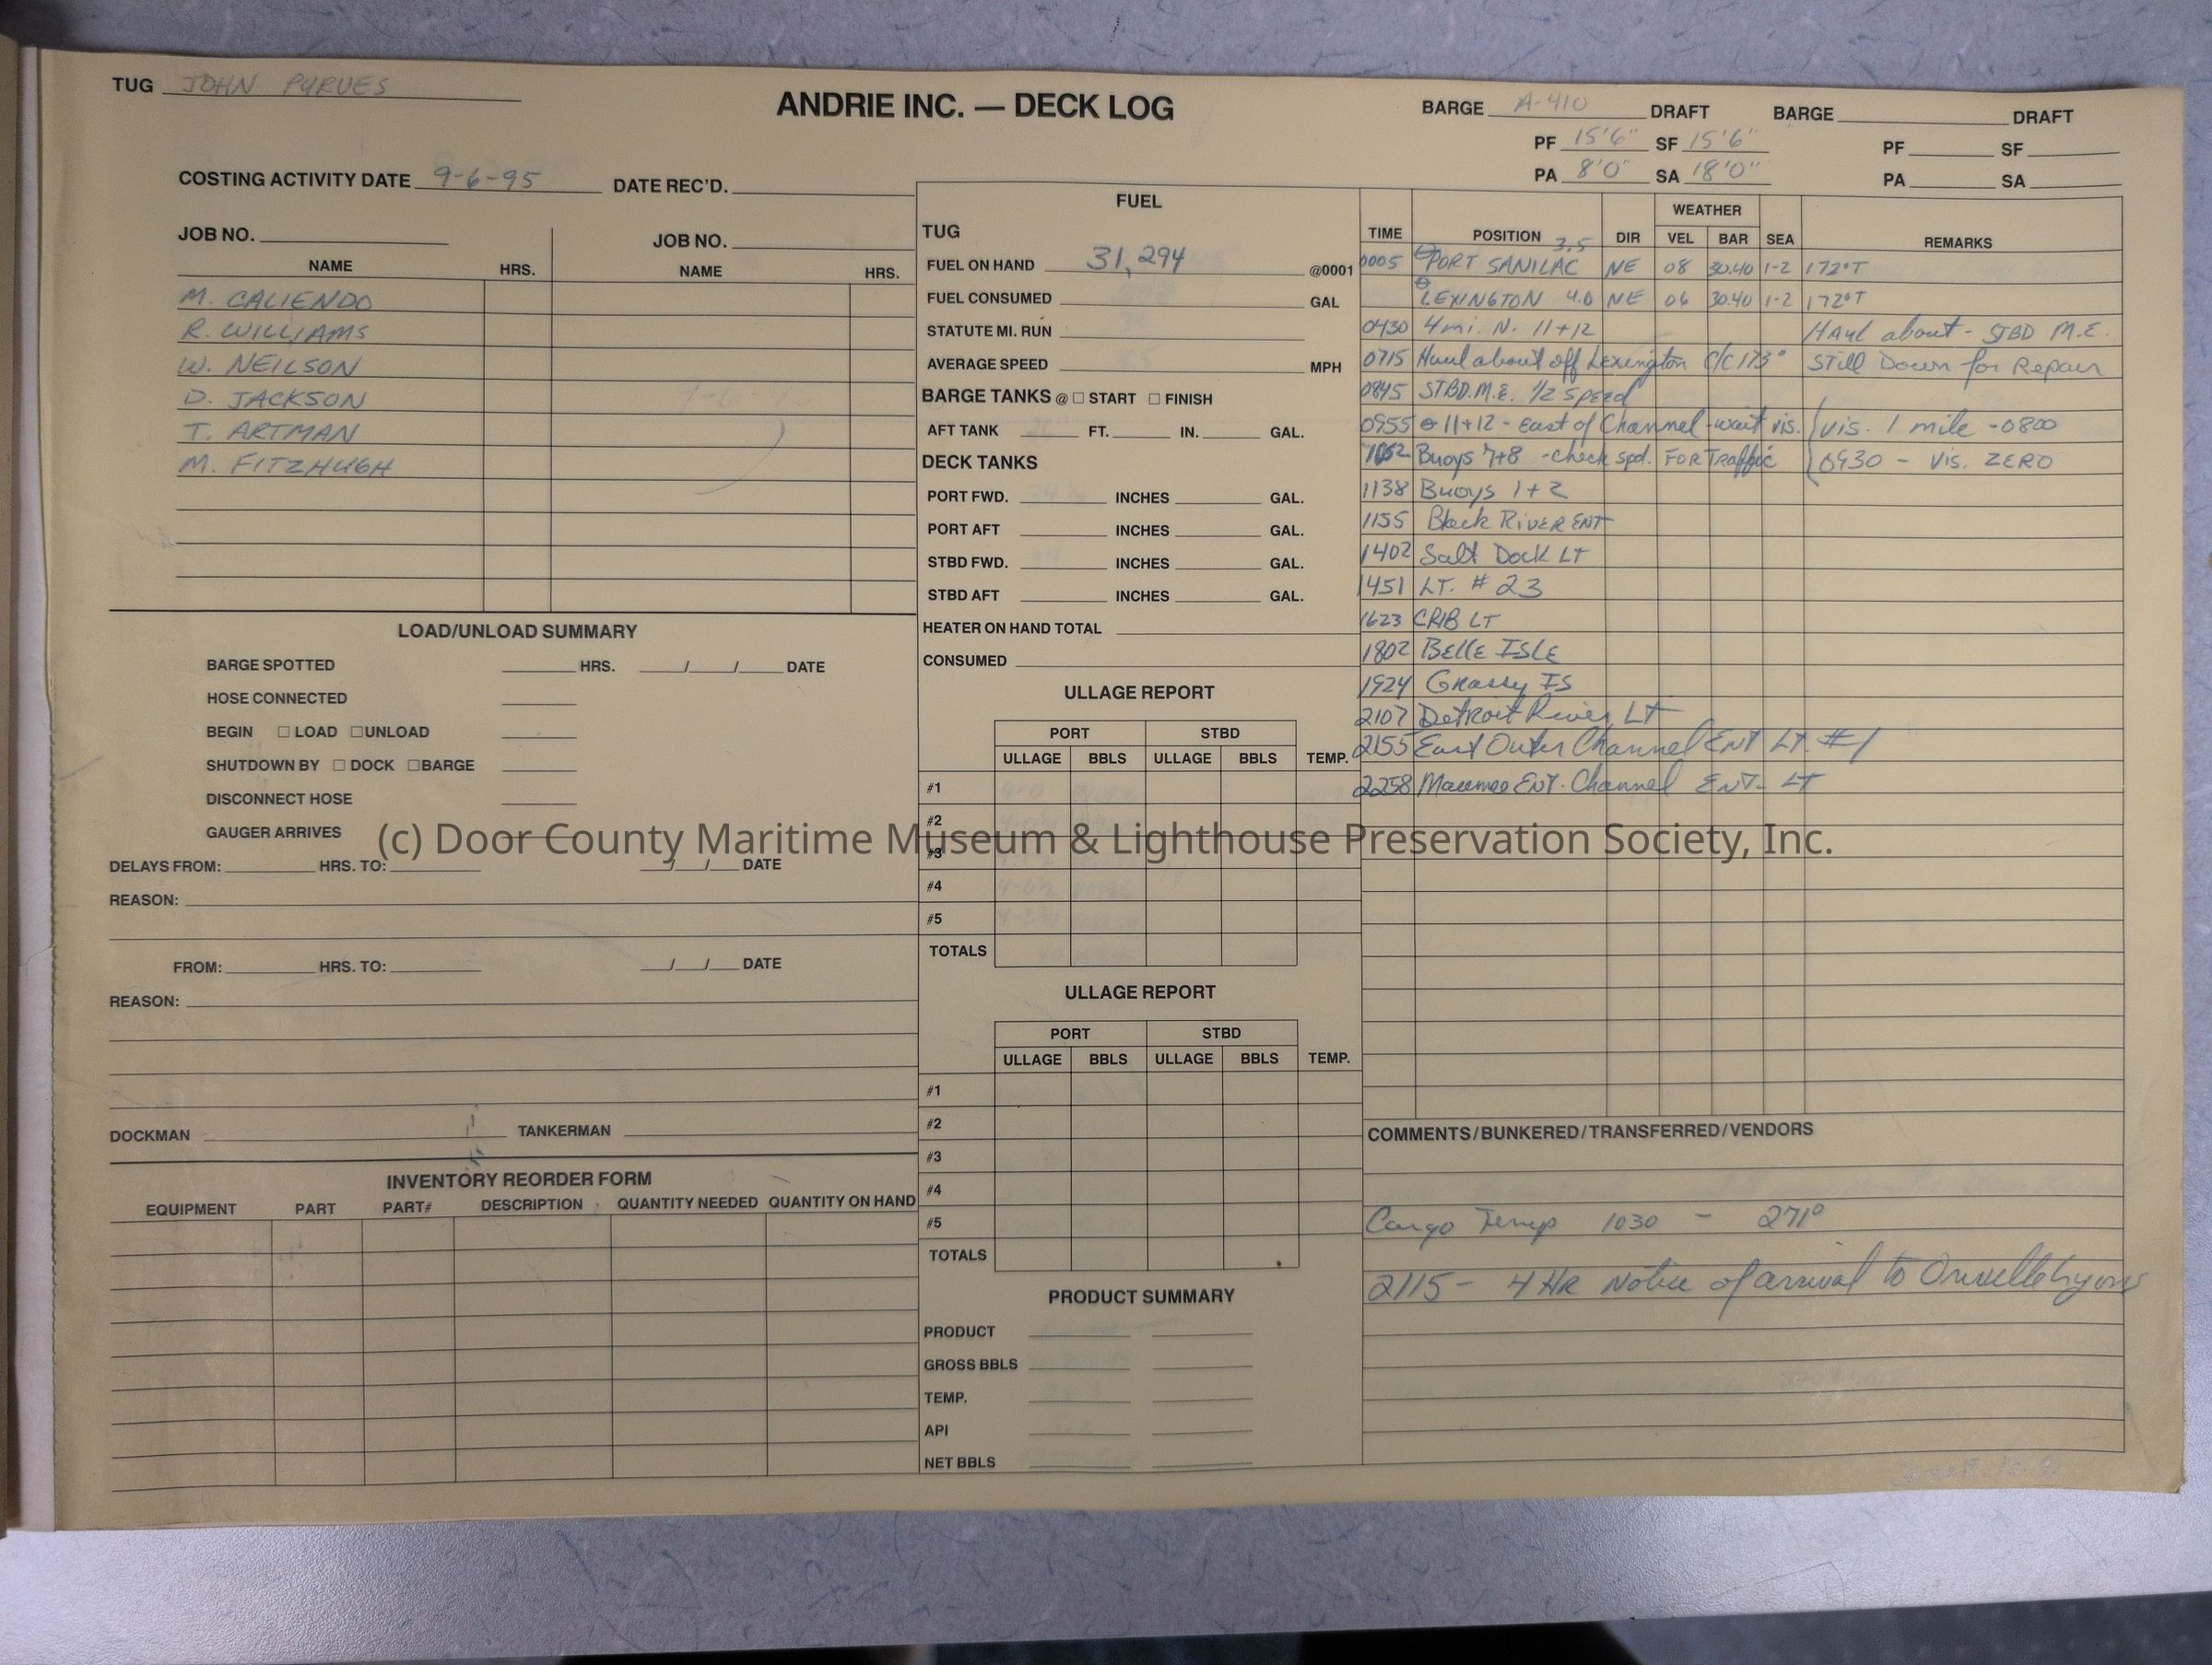 TUG JOHN PURVES
ANDRIE INC. — DECK LOG
BARGE A-410 DRAFT BARGE DRAFT
PF 15'6" SF 15'6" PF SF
PA 8'0" SA 18'0" PA SA
COSTING ACTIVITY DATE 9-6-95 DATE REC'D.
JOB NO. JOB NO.
NAME HRS. NAME HRS.
M. CALIENDO
R. WILLIAMS
W. NEILSON
D. JACKSON
T. ARTMAN
M. FITZHUGH
LOAD/UNLOAD SUMMARY
BARGE SPOTTED HRS. / / DATE
HOSE CONNECTED
BEGIN ☐ LOAD ☐ UNLOAD
SHUTDOWN BY ☐ DOCK ☐ BARGE
DISCONNECT HOSE
GAUGER ARRIVES
DELAYS FROM: HRS. TO: / / DATE
REASON:
FROM: HRS. TO: / / DATE
REASON:
DOCKMAN TANKERMAN
INVENTORY REORDER FORM
EQUIPMENT PART PART# DESCRIPTION QUANTITY NEEDED QUANTITY ON HAND
FUEL
TUG
FUEL ON HAND 31,294 @0001
FUEL CONSUMED GAL
STATUTE MI. RUN
AVERAGE SPEED MPH
BARGE TANKS @ ☐ START ☐ FINISH
AFT TANK FT. IN. GAL.
DECK TANKS
PORT FWD. INCHES GAL.
PORT AFT INCHES GAL.
STBD FWD. INCHES GAL.
STBD AFT INCHES GAL.
HEATER ON HAND TOTAL
CONSUMED
ULLAGE REPORT
PORT STBD
ULLAGE BBLS ULLAGE BBLS TEMP.
#1
#2
#3
#4
#5
TOTALS
ULLAGE REPORT
PORT STBD
ULLAGE BBLS ULLAGE BBLS TEMP.
#1
#2
#3
#4
#5
TOTALS
PRODUCT SUMMARY
PRODUCT
GROSS BBLS
TEMP.
API
NET BBLS
WEATHER
TIME POSITION DIR VEL BAR SEA REMARKS
0005 PORT SANILAC 3.5 NE 08 30.40 1-2 172°T
LEXINGTON 4.0 NE 06 30.40 1-2 172°T
0430 4 mi. N. 11+12 Haul about - STBD M.E.
0715 Haul about off Lexington C/C 173° Still Down for Repair
0845 STBD. M.E. 1/2 speed
0955 11+12 - East of Channel - wait vis. vis. 1 mile - 0800
1052 Buoys 7+8 - check spd. FOR Traffic 0930 - vis. ZERO
1138 Buoys 1+2
1155 Black RIVER ENT
1402 Salt Dock LT
1451 LT. # 23
1623 CRIB LT
1802 BELLE ISLE
1924 Grassy IS
2107 Detroit River LT
2155 East Outer Channel ENT LT. #1
2258 Maumee ENT. Channel ENT. LT
COMMENTS/BUNKERED/TRANSFERRED/VENDORS
Cargo Temp 1030 - 271°
2115 - 4 HR Notice of arrival to Orville Lyons
(c) Door County Maritime Museum & Lighthouse Preservation Society, Inc.